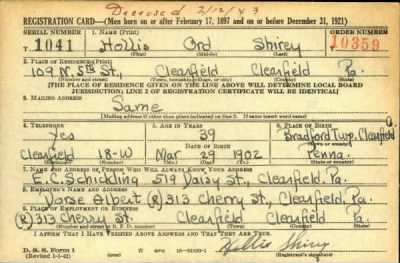 Deceased 2/12/43
REGISTRATION CARD—(Men born on or after February 17, 1897 and on or before December 31, 1921)
SERIAL NUMBER 1. NAME (Print) ORDER NUMBER
T 1041 Hollis Ord Shirey 10359
(First) (Middle) (Last)
2. PLACE OF RESIDENCE (Print)
109 N. 5th St., Clearfield Clearfield Pa.
(Number and street) (Town, township, village, or city) (County) (State)
[THE PLACE OF RESIDENCE GIVEN ON THE LINE ABOVE WILL DETERMINE LOCAL BOARD
JURISDICTION; LINE 2 OF REGISTRATION CERTIFICATE WILL BE IDENTICAL]
3. MAILING ADDRESS
Same
(Mailing address if other than place indicated on line 2. If same insert word same)
4. TELEPHONE 5. AGE IN YEARS 6. PLACE OF BIRTH
Yes 39 Bradford Twp. Clearfield
DATE OF BIRTH
Clearfield 18-W Mar 29 1902 Penna.
7. NAME AND ADDRESS OF PERSON WHO WILL ALWAYS KNOW YOUR ADDRESS
E.C. Schickling 519 Daisy St., Clearfield, Pa.
8. EMPLOYER'S NAME AND ADDRESS
Vorse Albert (R) 313 Cherry St., Clearfield, Pa.
9. PLACE OF EMPLOYMENT OR BUSINESS
(R) 313 Cherry St. Clearfield Clearfield Pa.
I AFFIRM THAT I HAVE VERIFIED ABOVE ANSWERS AND THAT THEY ARE TRUE.
D. S. S. Form 1
(Revised 1-5-42) Hollis Shirey